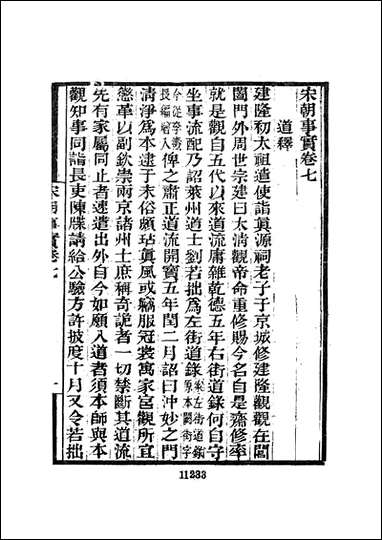 宋朝事實卷七
道釋
建隆初太祖遣使詣眞源祠老子于京城修建隆觀觀在閶
闔門外周世宗建曰太清觀帝命重修賜今名自是齋修率
就是觀自五代以來道流庸雜乾德五年右街道錄何自守
坐事流配乃詔萊州道士劉若拙爲左街道錄案左街道錄原本闕街字
今從李燾長編增入俾之肅正道流開寶五年閏二月詔曰沖妙之門
清淨爲本逮于末俗頗玷眞風或竊服冠裳寓家宮觀所宜
懲革以副欽崇兩京諸州士庶稱奇詭者一切禁斷其道流
先有家屬同止者速遣出外自今如願入道者須本師與本
觀知事同詣長吏陳牒請給公驗方許披度十月又令若拙
宋朝事實卷七
一
11233